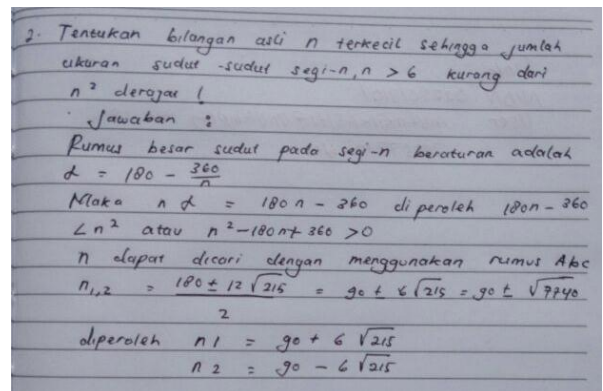 2. Tentukan bilangan asli n terkecil sehingga jumlah
ukuran sudut-sudut segi-n, n > 6 kurang dari
n² derajat !
Jawaban :
Rumus besar sudut pada segi-n beraturan adalah
α = 180 - 360/n
Maka n α = 180n - 360 diperoleh 180n - 360
< n² atau n² - 180n + 360 > 0
n dapat dicari dengan menggunakan rumus Abc
n₁,₂ = (180 ± 12√215)/2 = 90 ± 6√215 = 90 ± √7740
diperoleh n1 = 90 + 6√215
n2 = 90 - 6√215